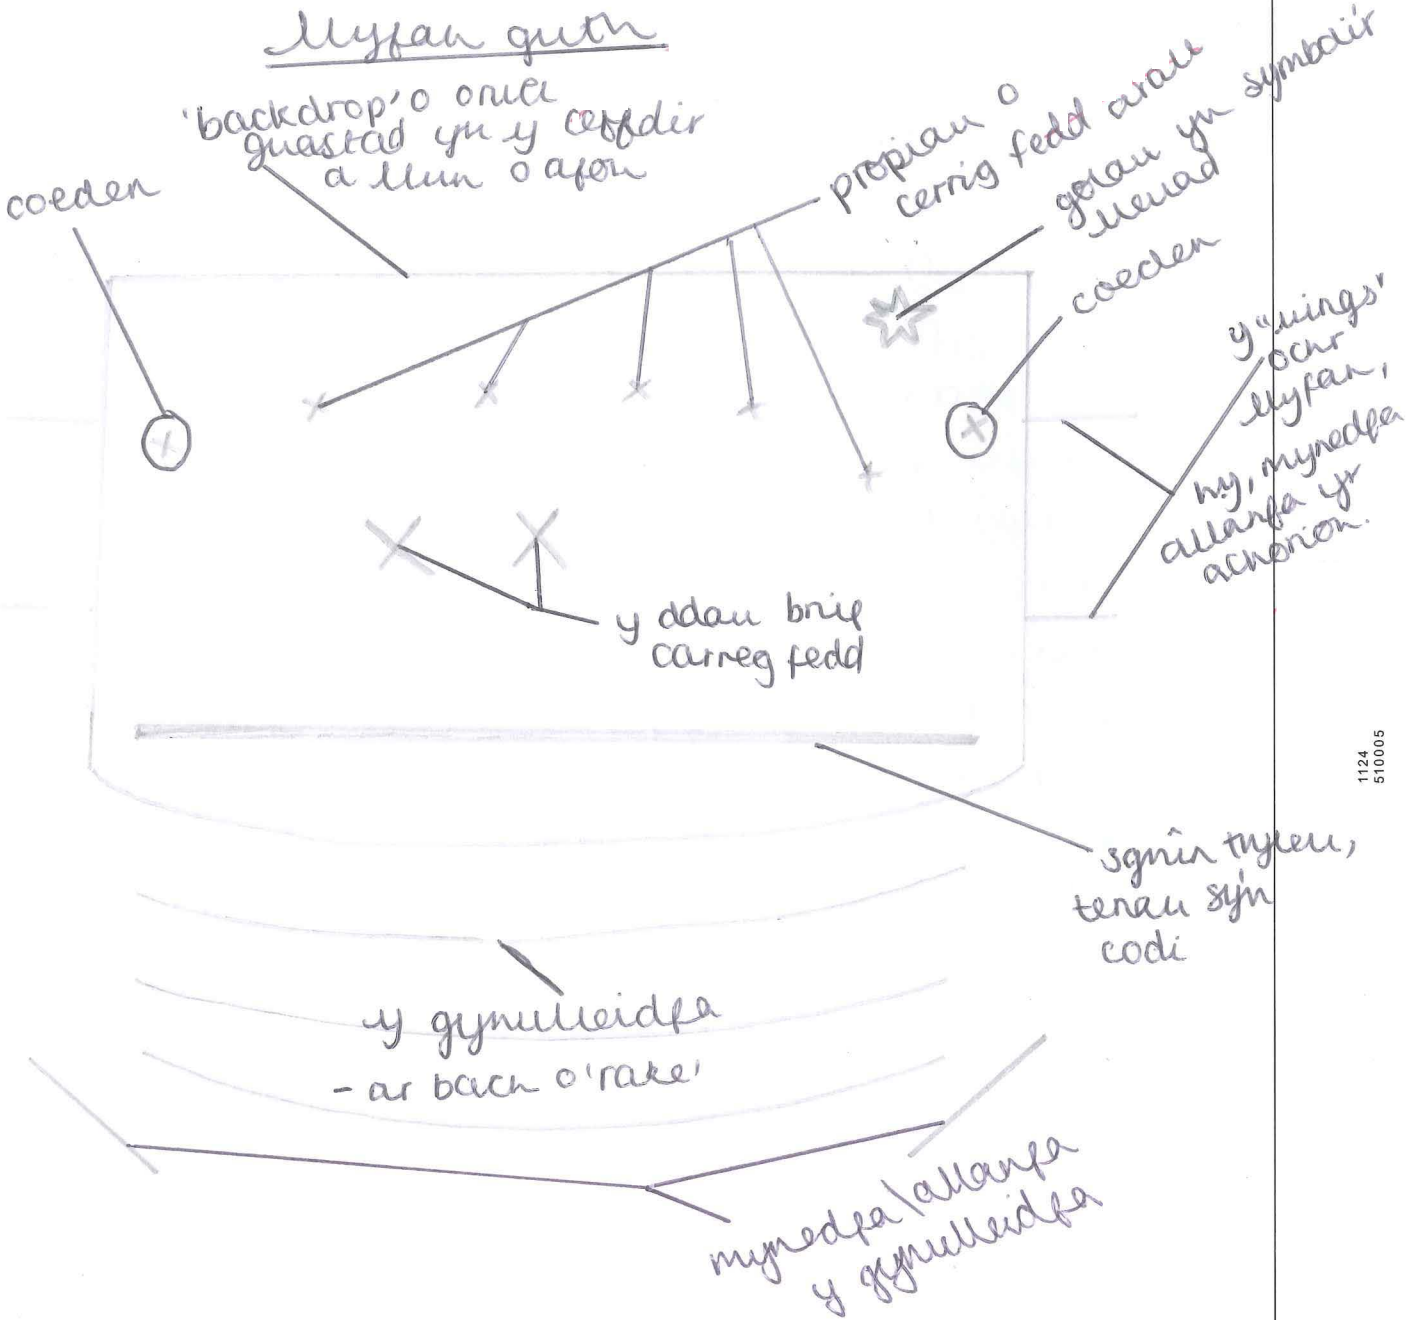 Llwyfan gwth
'backdrop' o
gwastad yn y cefndir
a llun o afon
coeden
propiau o
cerrig fedd arall
golau yn symboli'r
lleuad
coeden
y "wings"
ochr
llwyfan,
h.y, mynedfa
allanfa yr
actorion.
y ddau brif
carreg fedd
sgrîn tryleu,
tenau sy'n
codi
y gynulleidfa
- ar bach o 'rake'
mynedfa\allanfa
y gynulleidfa
1124
510005